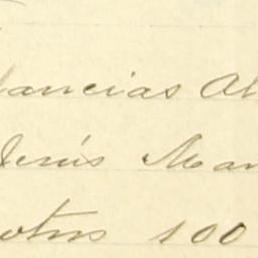 lancias Al
Jesús Man
otros 100